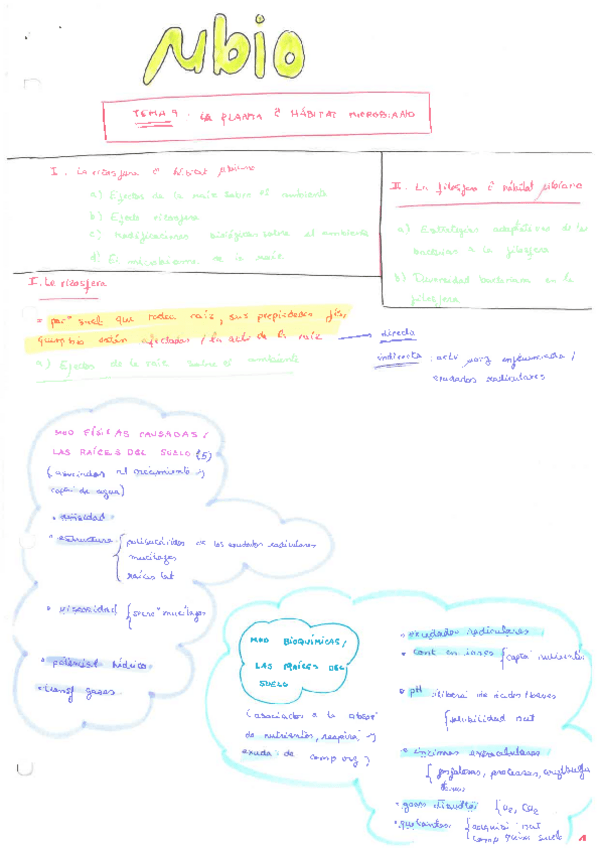 μbio
TEMA 9: LA PLANTA C HÁBITAT MICROBIANO
I. La rizosfera C hábitat
a) Efectos de la raíz sobre el ambiente
b) Efecto rizosfera
c) Modificaciones biológicas sobre el ambiente
d) El microbioma de la raíz
II. La filosfera C hábitat
a) Estrategias adaptativas de las
bacterias a la filosfera
b) Diversidad bacteriana en la
filosfera
I. La rizosfera
= suelo que rodea raíz, sus propiedades fís,
están afectadas / la activ de la raíz
directa
indirecta: activ
exudados radiculares
a) Efectos de la raíz sobre el ambiente
MOD FÍSICAS CAUSADAS /
LAS RAÍCES DEL SUELO (5)
(asociadas al crecimiento y
de agua)
• densidad
• estructura { polisacáridos de los exudados radiculares
mucílagos
raíces lat
• viscosidad { mucílagos
• potencial hídrico
• transf gases
MOD BIOQUÍMICAS /
LAS RAÍCES DEL
SUELO
(asociadas a la
de nutrientes, respira y
exuda de comp org)
• exudados radiculares
• cont en iones { capta nutrientes
• pH : libera de ácidos/bases
{ solubilidad nut
• enzimas extracelulares
{ fosfatasas, proteasas,
• gases disueltos { O₂, CO₂
• quelantes { nut
comp suelo
1